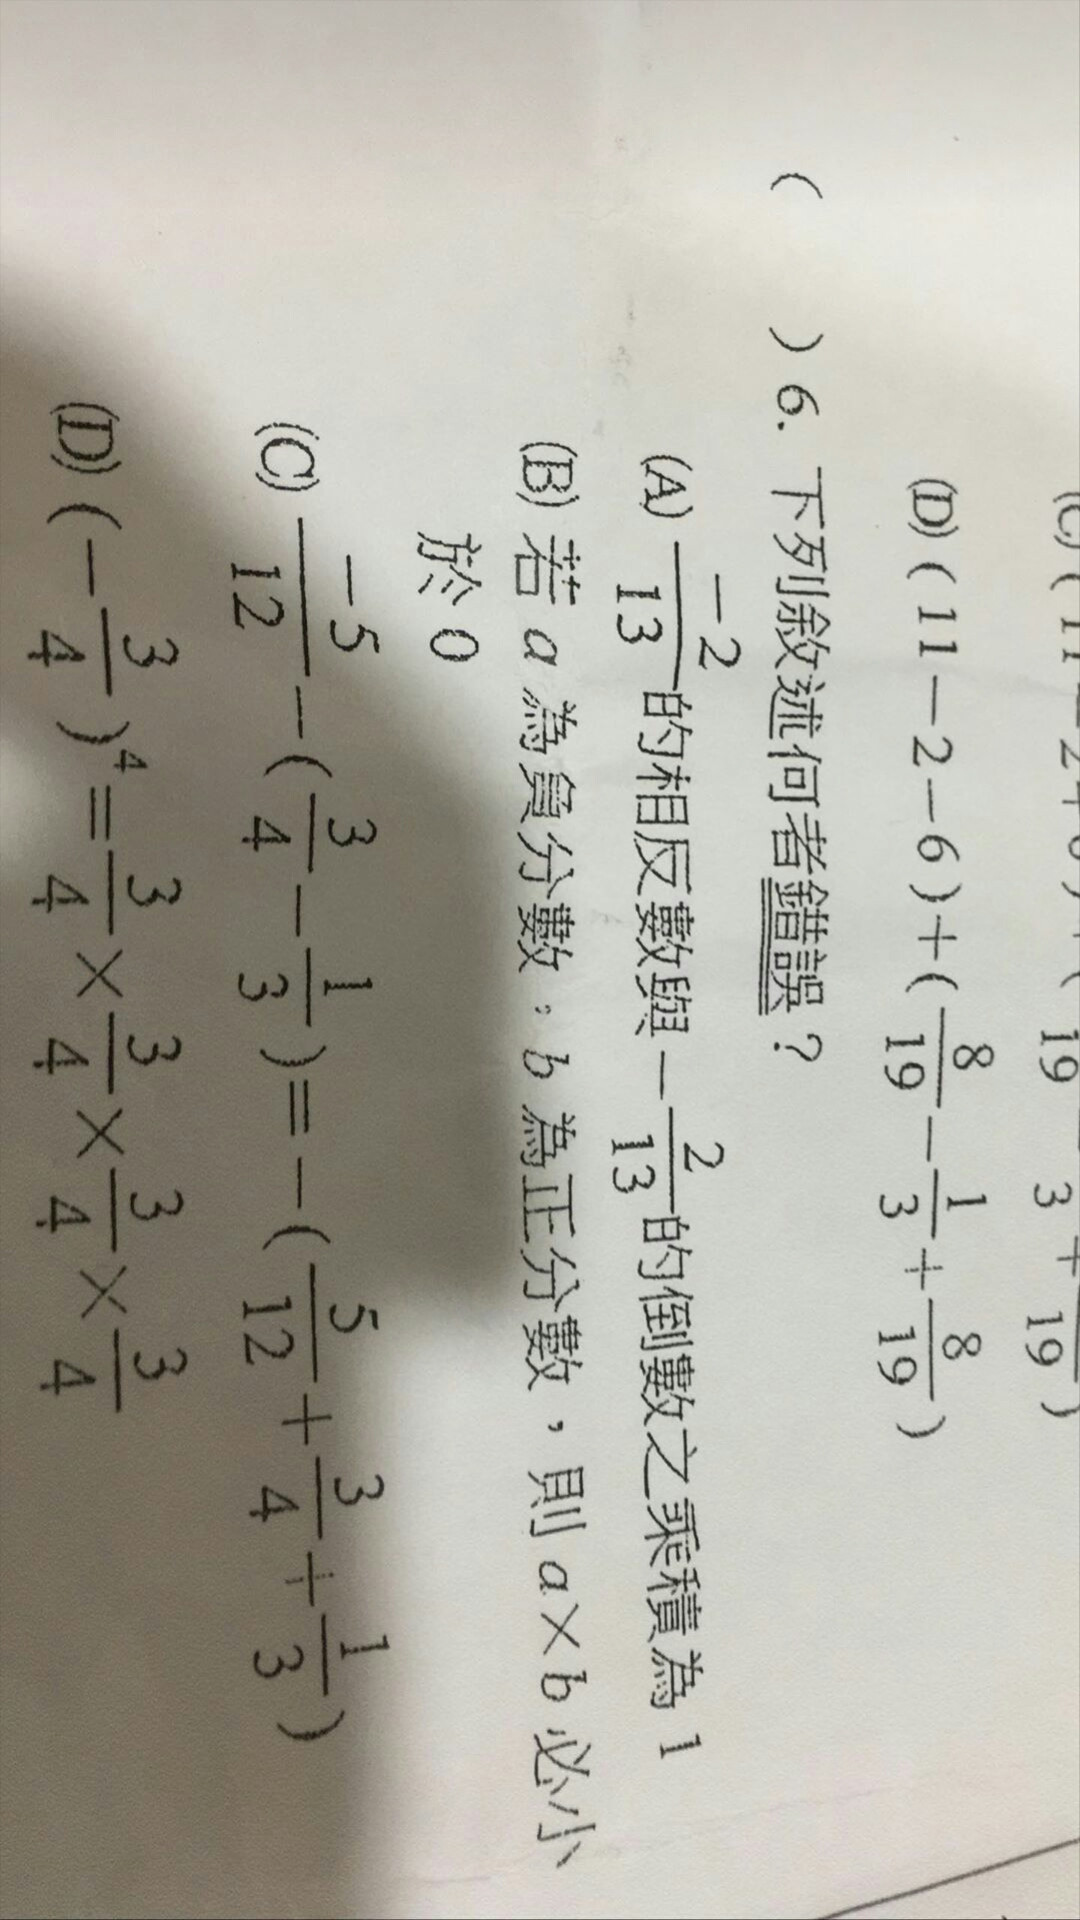 (C) (11-2+6)+(8/19-1/3+8/19)
(D) (11-2-6)+(8/19-1/3+8/19)
( ) 6. 下列敘述何者錯誤？
(A) -2/13的相反數與-2/13的倒數之乘積為 1
(B) 若 a 為負分數，b 為正分數，則 a×b 必小
於 0
(C) -5/12-(3/4-1/3)=-(5/12+3/4+1/3)
(D) (-3/4)⁴=3/4×3/4×3/4×3/4